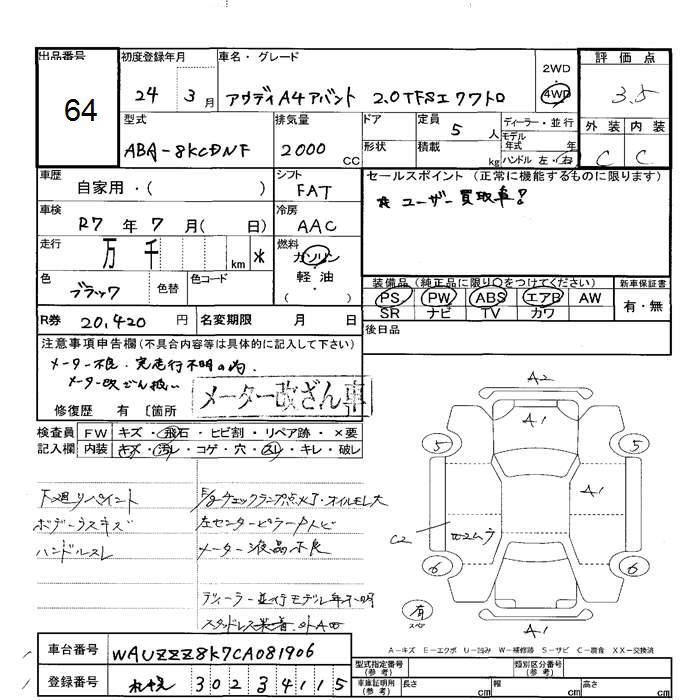 出品番号
64
初度登録年月
24 3月
車名・グレード
アウディA4アバント 2.0TFSIクワトロ
2WD
4WD
評価点
3.5
外装 内装
C C
型式
ABA-8KCDNF
排気量
2000 CC
ドア
形状
定員 5 人
積載 kg
ディーラー・並行
モデル年式 年
ハンドル 左・右
車歴 自家用・( )
シフト FAT
セールスポイント (正常に機能するものに限ります)
ユーザー買取車!
車検 R7年7月( 日)
冷房 AAC
走行 万 千 km *
燃料 ガソリン・軽油・( )
色 ブラック 色替 色コード
装備品 (純正品に限り○をつけてください)
PS PW ABS エアB AW
SR ナビ TV カワ
新車保証書
有・無
R券 20,420 円 名変期限 月 日
後日品
注意事項申告欄(不具合内容等は具体的に記入して下さい)
メーター不良.実走行不明の為.
メーター改ざん扱い
メーター改ざん車
修復歴 有 〔箇所
検査員記入欄
FW キズ・飛石・ヒビ割・リペア跡・×要
内装 キズ・汚レ・コゲ・穴・スレ・キレ・破レ
下廻リペイント
ボデーラスキズ
ハンドルスレ
E/gチェックランプ点灯・オイルモレ大
左センターピラー
メーター液晶不良
ディーラー並行モデル年不明
スタッドレス装着
A2
A1
5
5
A1
C2
ムラ
6
6
有
スペア
A1
A1
A-キズ E-エクボ U-凹み W-補修跡 S-サビ C-腐食 XX-交換済
車台番号 WAUZZZ8K7CA081906
登録番号 札幌 302 3 4115
型式指定番号(参考)
類別区分番号(参考)
車庫証明用(参考) 長さ cm 幅 cm 高さ cm